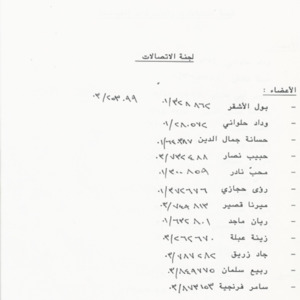 لجنة الاتصالات
الأعضاء :
- بول الأشقر ٠١/٣٢٨٨٦٢ ٠٣/٢٠٣٠٩٩
- وداد حلواني
- حسانة جمال الدين
- حبيب نصار ٠٣/٧٣٢٤٨٨
- محب نادر ٠١/٣٠٠٨٥٩
- رؤى حجازي ٠١/٣٧٢٦٧٦
- ميرنا قصير ٠٣/٧٤٩٨١٣
- ريان ماجد ٠١/٦٣٢٨٠١
- زينة عبلة ٠٣/٢٦٢٦٧٠
- جاد زريق ٠٣/٧٨٧٢٨٢
- ربيع سلمان ٠٣/٨٤٩٧٧٥
- سامر فرنجية ٠٣/٨٧٣١٥٣